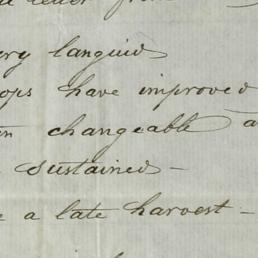 letter from
ery languid
ops have improved
en changeable a
sustained –
a late harvest –